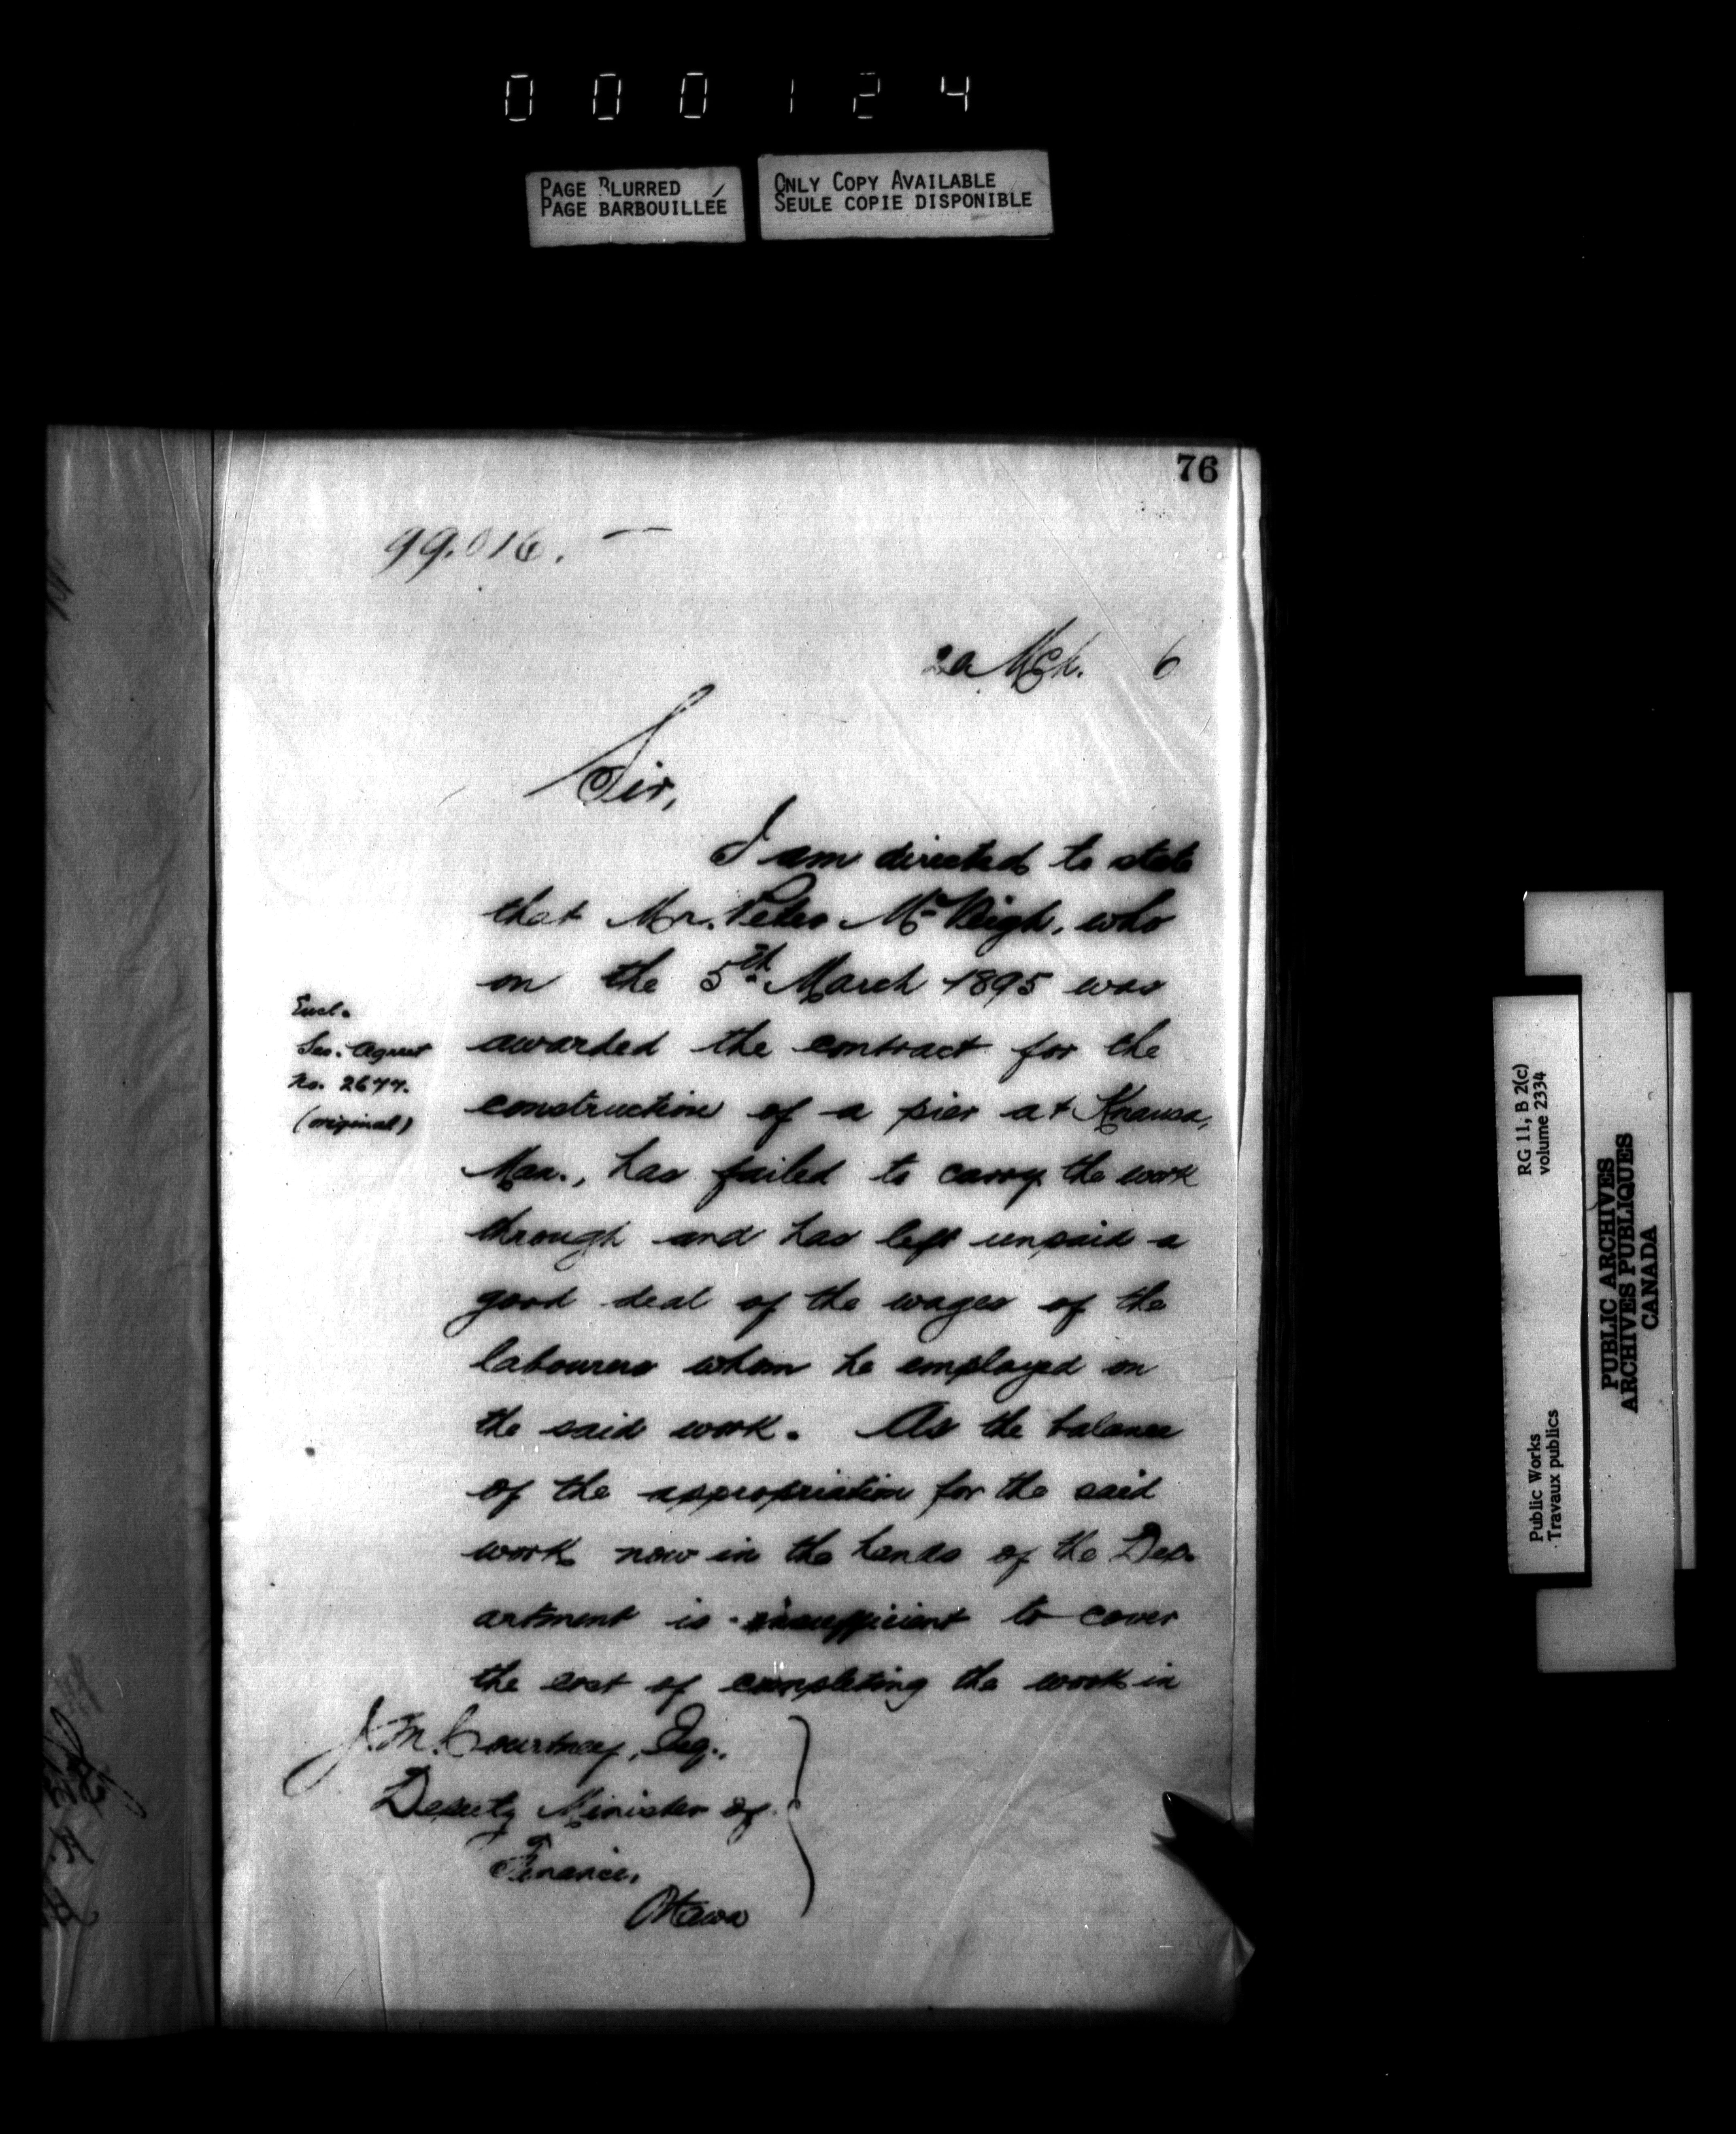 000124
PAGE BLURRED
PAGE BARBOUILLÉE
ONLY COPY AVAILABLE
SEULE COPIE DISPONIBLE
76
99.016.
Mch. 6
Sir,
I am directed to state
that Mr. Peter McVeigh, who
on the 5th March 1895 was
awarded the contract for the
construction of a pier at
Man., has failed to carry the work
through and has left unpaid a
good deal of the wages of the
labourers whom he employed on
the said work. As the balance
of the appropriation for the said
work now in the hands of the Dep-
artment is insufficient to cover
the cost of completing the work in
Encl.
No. 2677.
(original)
J. M. Courtney, Esq.,
Deputy Minister of
Finance,
Ottawa
RG 11, B 2(c)
volume 2334
Public Works
Travaux publics
PUBLIC ARCHIVES
ARCHIVES PUBLIQUES
CANADA